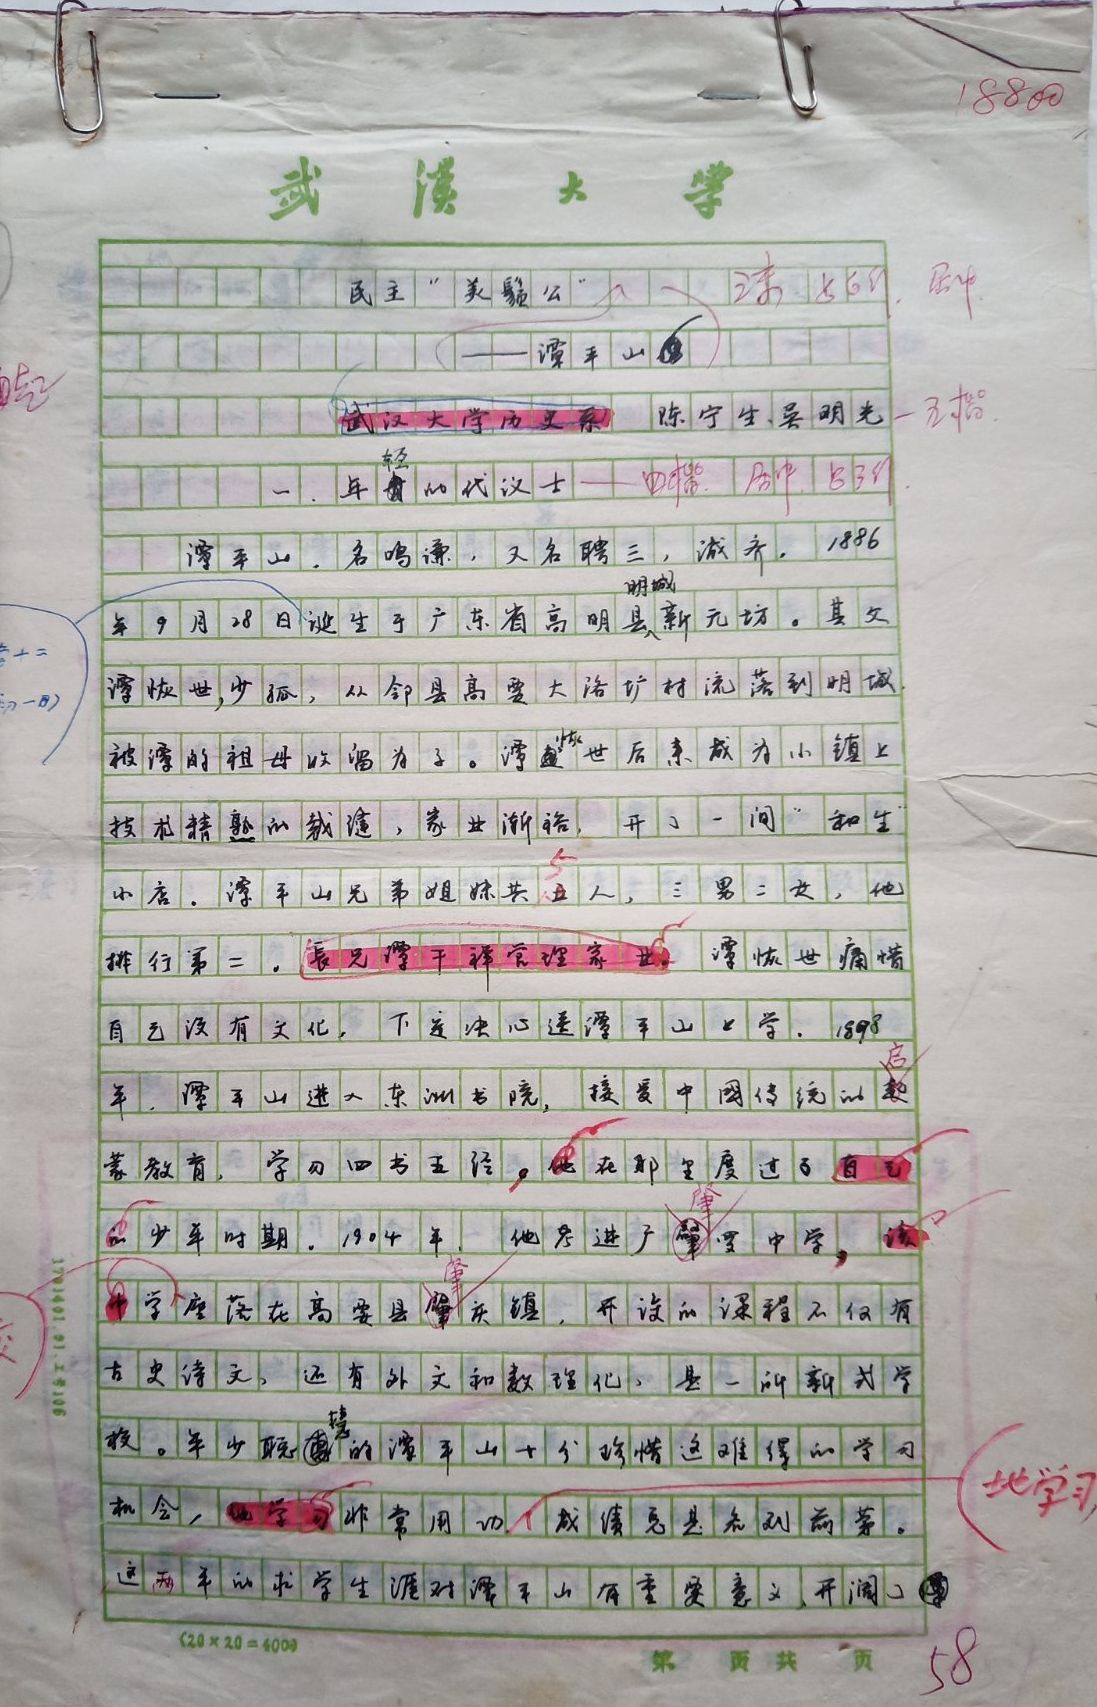 18800
武漢大学
民主“美髯公”
——谭平山
武汉大学历史系 陈宁生、吴明光
一、年轻的代议士
谭平山，名鸣谦，又名聘三，诚斋，1886
明城
年9月28日诞生于广东省高明县新元坊。其父
谭恢世，少孤，从邻县高要大洛圹村流落到明城，
被谭的祖母收留为子。谭恢世后来成为小镇上
技术精熟的裁缝，家业渐裕，开了一间“和生”
小店。谭平山兄弟姐妹共5人，三男二女，他
排行第二。长兄谭干祥管理家业。谭恢世痛惜
自己没有文化，下定决心送谭平山上学。1898
年，谭平山进入东洲书院，接受中國传统的启
蒙教育，学习四书五经。他在那里度过了自己
的少年时期。1904年，他考进了肇要中学，该
中学座落在高要县肇庆镇，开设的课程不仅有
古史诗文，还有外文和数理化，是一所新式学
校。年少聪慧的谭平山十分珍惜这难得的学习
机会，他学习非常用功，成绩总是名列前茅。
地学习
这两年的求学生涯对谭平山有重要意义，开阔了
1701401.91.
(20×20=400)
第 页 共 页
58